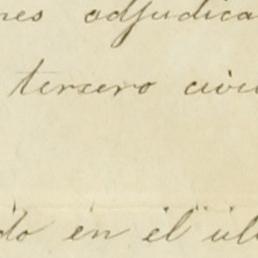 nes adjudica
tercero civi
do en el úl